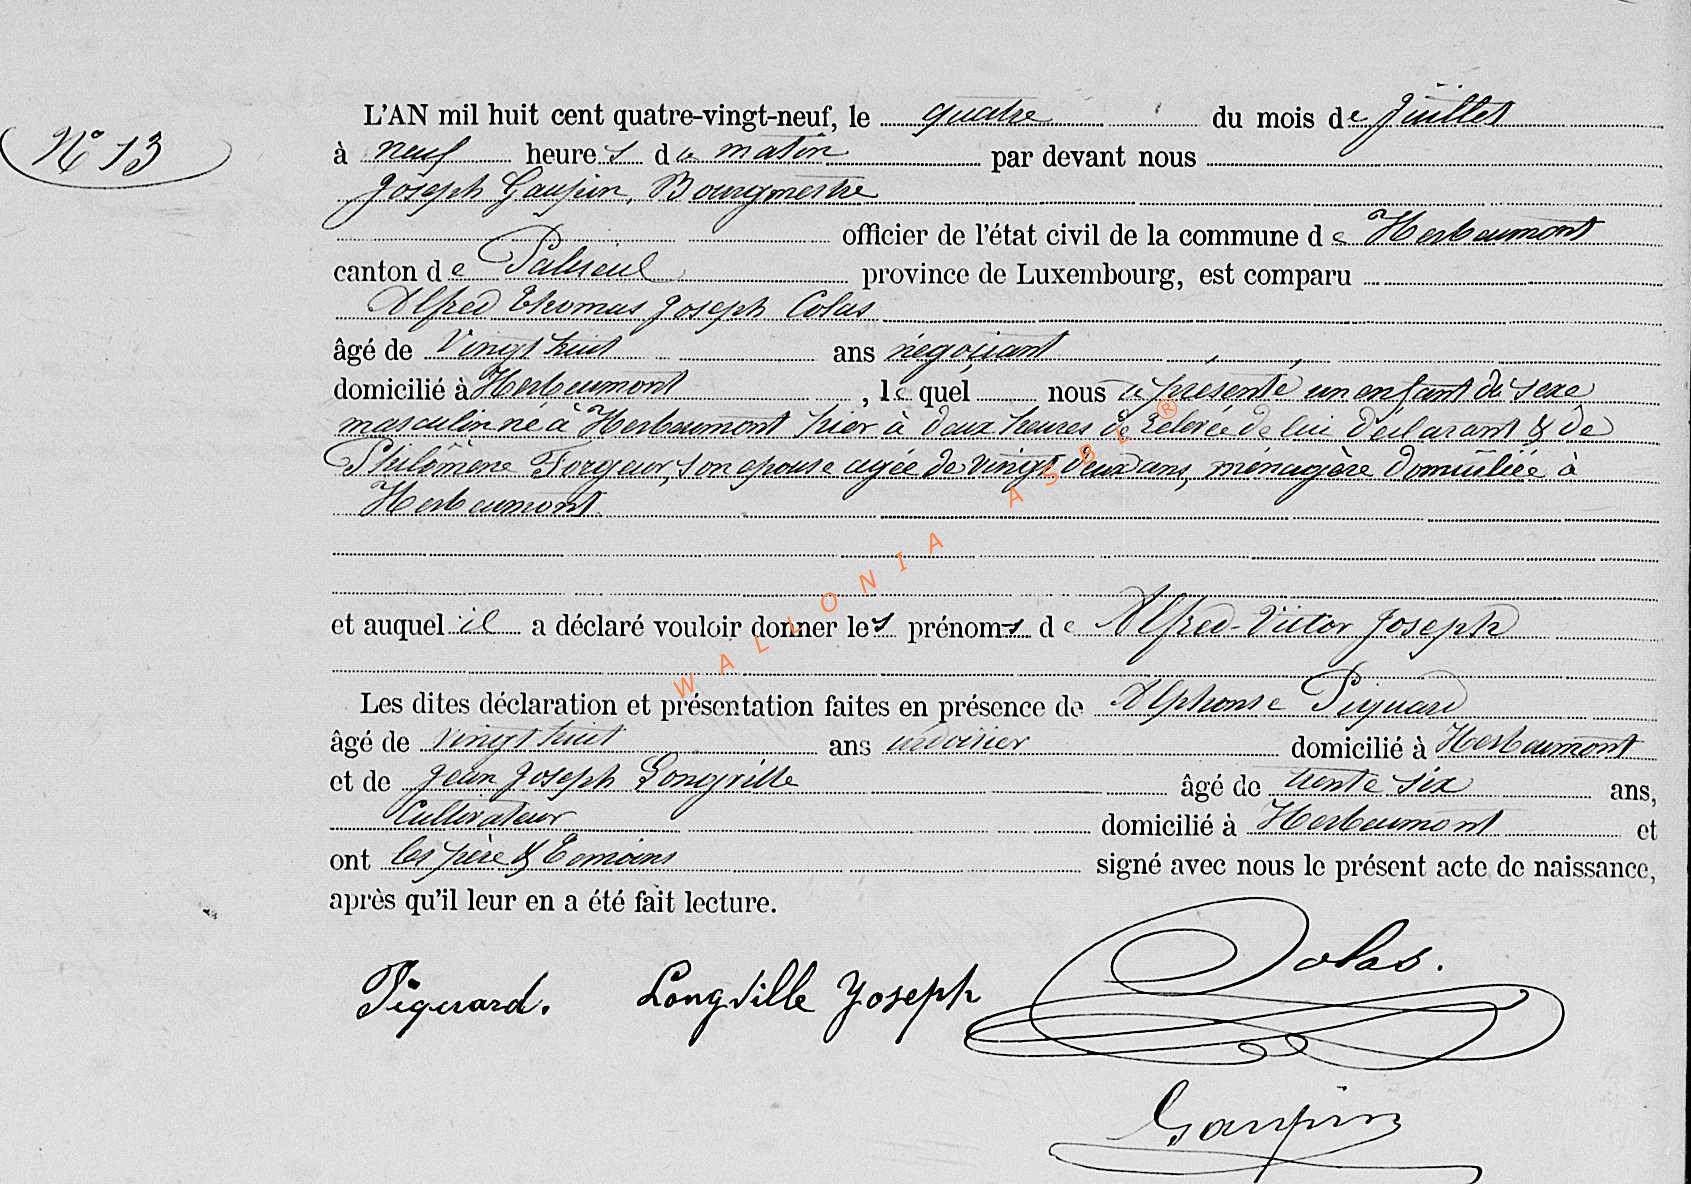 L'AN mil huit cent quatre-vingt-neuf, le quatre du mois de Juillet
N° 13
à neuf heures du matin par devant nous
Joseph Gaupin, Bourgmestre
officier de l'état civil de la commune de Herbeumont
canton de Paliseul province de Luxembourg, est comparu
Alfred Thomas Joseph Colas
âgé de Vingt huit ans négociant
domicilié à Herbeumont, lequel nous a présenté un enfant de sexe
masculin né à Herbeumont hier à deux heures de relevée de lui déclarant & de
Philomène Forgeur, son epouse agée de vingt deux ans, ménagère domiciliée à
Herbeumont.
et auquel il a déclaré vouloir donner les prénoms de Alfred-Victor Joseph
Les dites déclaration et présentation faites en présence de Alphonse Piquard
âgé de vingt huit ans domicilié à Herbeumont
et de Jean Joseph Longville âgé de trente six ans,
Cultivateur domicilié à Herbeumont et
ont les père & Temoins signé avec nous le présent acte de naissance,
après qu'il leur en a été fait lecture.
Piquard. Longville Joseph Colas.
Gaupin
WALLONIA ASBL ®